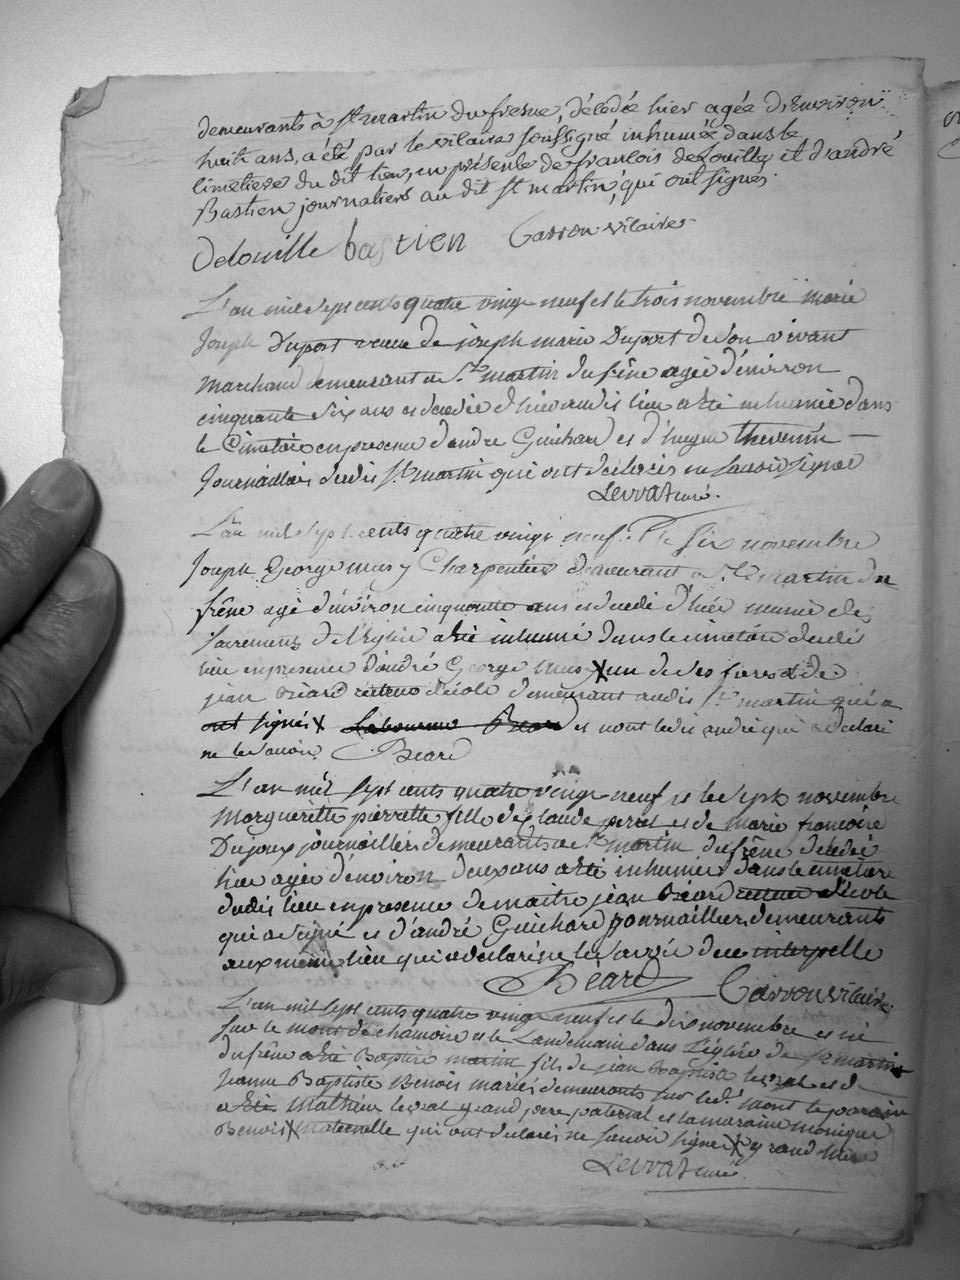 demeurants à st martin du fresne, décédée hier agée d'Environ
huit ans, a été par le vicaire soussigné inhumée dans le
cimetiere du dit lieu, en présence de francois delouille et d'andré
Bastien journaliers au dit st martin, qui ont signés.
Delouille bastien Carron vicaire
L'an mil sept cents quatre vingt neuf et le trois novembre marie
Joseph Duport veuve de joseph marie Duport de son vivant
marchand demeurant a St martin du frêne agée d'environ
cinquante six ans et decedée d'hier audit lieu a été inhumée dans
le Cimetière en presence d'andré Guichard et d'hugue thevenin
Journailliés dudit St martin qui ont declarés ne savoir signer
Levrat curé.
L'an mil sept cents quatre vingt neuf et le six novembre
Joseph George mussy Charpentier demeurant a St martin du
frêne agé d'environ cinquante ans et decedé d'hier munie des
sacremens de l'église a été inhumé dans le cimetière dudit
lieu en presence d'andré George mussy X un de ses freres et de
jean Béard recteur d'école demeurant audit St martin qui a
ont signés X Laboureur Béard et nont ledit andré qui a declaré
ne le savoir Béard
L'an mil sept cents quatre vingt neuf et le sept novembre
Marguerite pierrette fille de Claude perret et de marie francoise
Dujoux journailliers demeurants a St martin du frêne décédée
hier agée d'environ deux ans a été inhumée dans le cimetière
dudit lieu en presence de maitre jean Béard recteur d'école
qui a signé et d'andré Guichard journaillier, demeurants
aux même lieu qui a declaré ne le savoir de ce interpellé
Béard Carron vicaire
L'an mil sept cents quatre vingt neuf et le dix novembre est né
sur le mont de chamoise et le Landemain dans l'église de St martin
du frêne a été Baptisé martin fils de jean baptiste levrat et de
Jeanne Baptiste Benoit mariés demeurants sur le dt mont le parrain
a été Mathieu levrat grand pere paternel et la maraine monique
Benoit X maternelle qui ont declarés ne savoir signer X grand mere
Levrat curé